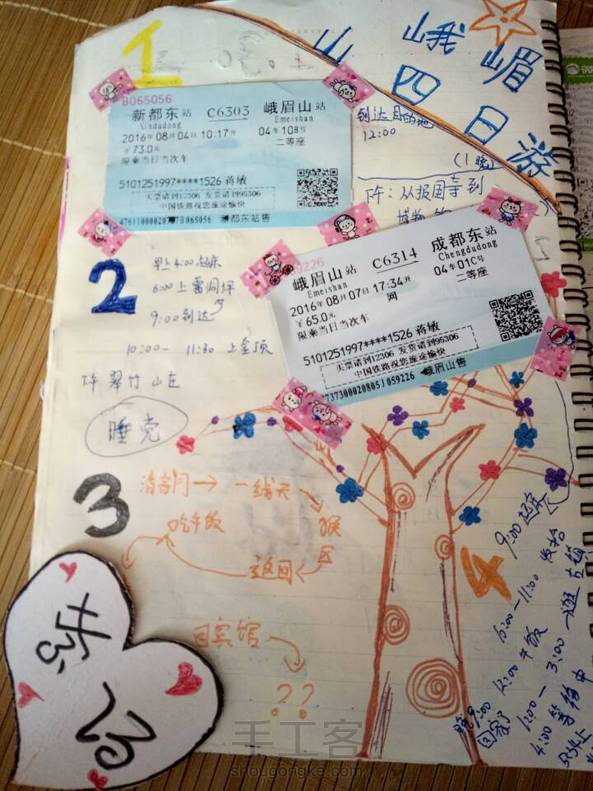 1
峨嵋
山四日游
8065056
新都东站 C6303 峨眉山站
Xindudong Emeishan
2016年08月04日 10:17开 04车10B号
￥73.0元 二等座
限乘当日当次车
5101251997****1526 蒋敏
买票请到12306 发货请到95306
中国铁路祝您旅途愉快
新都东站售
到达目的地
12:00
(1晚)
下午：从报国寺到
博物
2
早上4:00起床
6:00上雷洞坪
9:00到达
10:00—11:30 上金顶
睡觉
峨眉山站 C6314 成都东站
Emeishan Chengdudong
2016年08月07日 17:34开 04车01C号
￥65.0元 网 二等座
限乘当日当次车
5101251997****1526 蒋敏
买票请到12306 发货请到95306
中国铁路祝您旅途愉快
7373000208051 059226 峨眉山售
3
清音阁→一线天
猴
区
返回
吃午饭
回宾馆
??
4
9:00起床
12:00午饭
1:00—3:00
晚9:00
回家了
手工客
shougongke.com